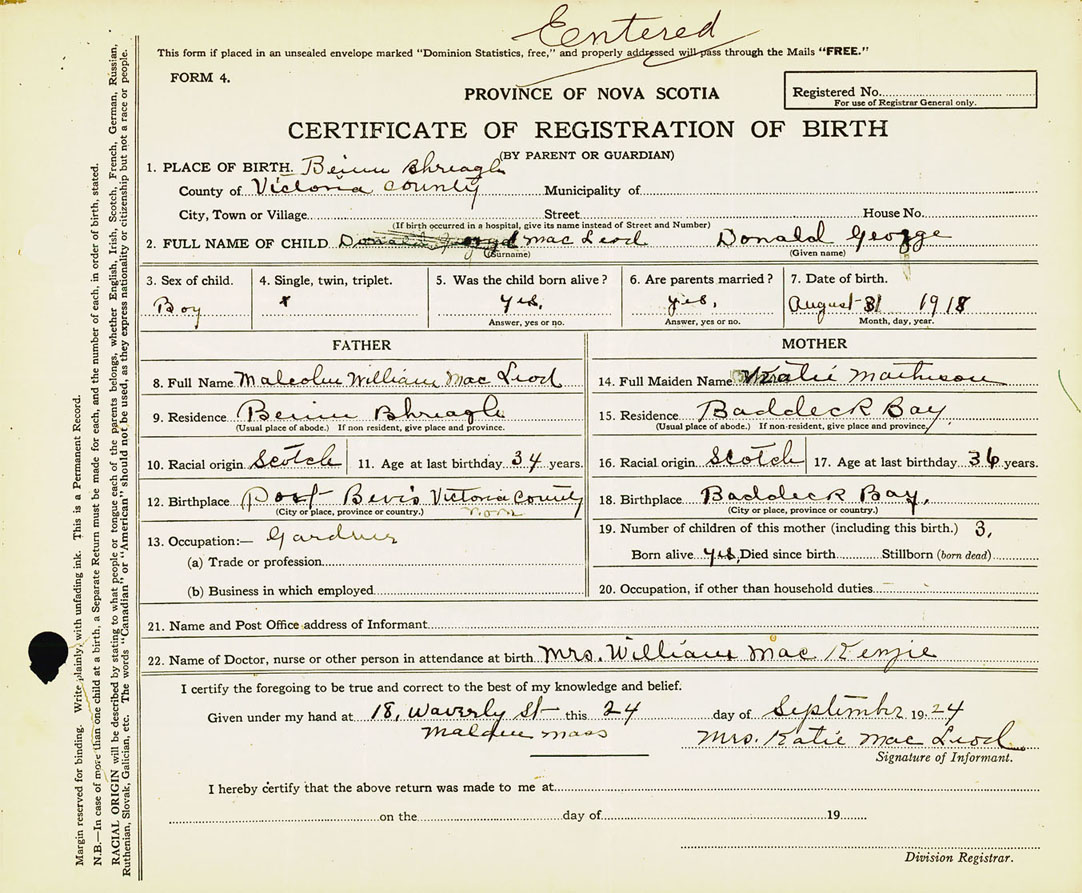 Entered
This form if placed in an unsealed envelope marked "Dominion Statistics, free," and properly addressed will pass through the Mails "FREE."
FORM 4.
PROVINCE OF NOVA SCOTIA
Registered No.
For use of Registrar General only.
CERTIFICATE OF REGISTRATION OF BIRTH
(BY PARENT OR GUARDIAN)
1. PLACE OF BIRTH. Beinn Bhreagh
County of Victoria County Municipality of
City, Town or Village Street House No.
(If birth occurred in a hospital, give its name instead of Street and Number)
2. FULL NAME OF CHILD Mac Leod Donald George
(Surname) (Given name)
3. Sex of child. 4. Single, twin, triplet. 5. Was the child born alive? 6. Are parents married? 7. Date of birth.
Boy yes, yes, August 31 1918
Answer, yes or no. Answer, yes or no. Month, day, year.
FATHER
8. Full Name Malcolm William Mac Leod
9. Residence Beinn Bhreagh
(Usual place of abode.) If non resident, give place and province.
10. Racial origin Scotch 11. Age at last birthday 34 years.
12. Birthplace Port Bevis Victoria County
(City or place, province or country.)
13. Occupation:— Gardner
(a) Trade or profession
(b) Business in which employed
MOTHER
14. Full Maiden Name Katie Mathison
15. Residence Baddeck Bay
(Usual place of abode.) If non-resident, give place and province.
16. Racial origin Scotch 17. Age at last birthday 36 years.
18. Birthplace Baddeck Bay.
(City or place, province or country.)
19. Number of children of this mother (including this birth.) 3,
Born alive yes, Died since birth Stillborn (born dead)
20. Occupation, if other than household duties
21. Name and Post Office address of Informant
22. Name of Doctor, nurse or other person in attendance at birth Mrs. William Mac Kenzie
I certify the foregoing to be true and correct to the best of my knowledge and belief.
Given under my hand at 18, Waverly St this 24 day of September 1924
Malden Mass Mrs. Katie Mac Leod
Signature of Informant.
I hereby certify that the above return was made to me at
on the day of 19
Division Registrar.
Margin reserved for binding. Write plainly, with unfading ink. This is a Permanent Record.
N.B.—In case of more than one child at a birth, a Separate Return must be made for each, and the number of each, in order of birth, stated.
RACIAL ORIGIN will be described by stating to what people or tongue each of the parents belongs, whether English, Irish, Scotch, French, German, Russian,
Ruthenian, Slovak, Galician, etc. The words "Canadian" or "American" should not be used, as they express nationality or citizenship but not a race or people.